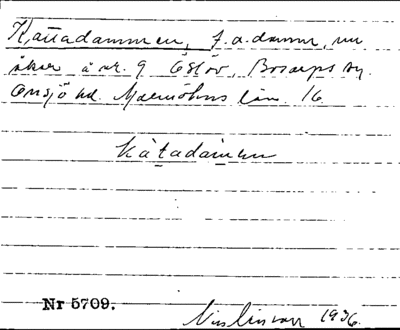 Kattadammen, f.d. damm, nu
åker å nr. 9 Eslöv, Bosarps sn.
Onsjö hd. Malmöhus län. 16
kàtadàmen
Nr 5709.
1936.